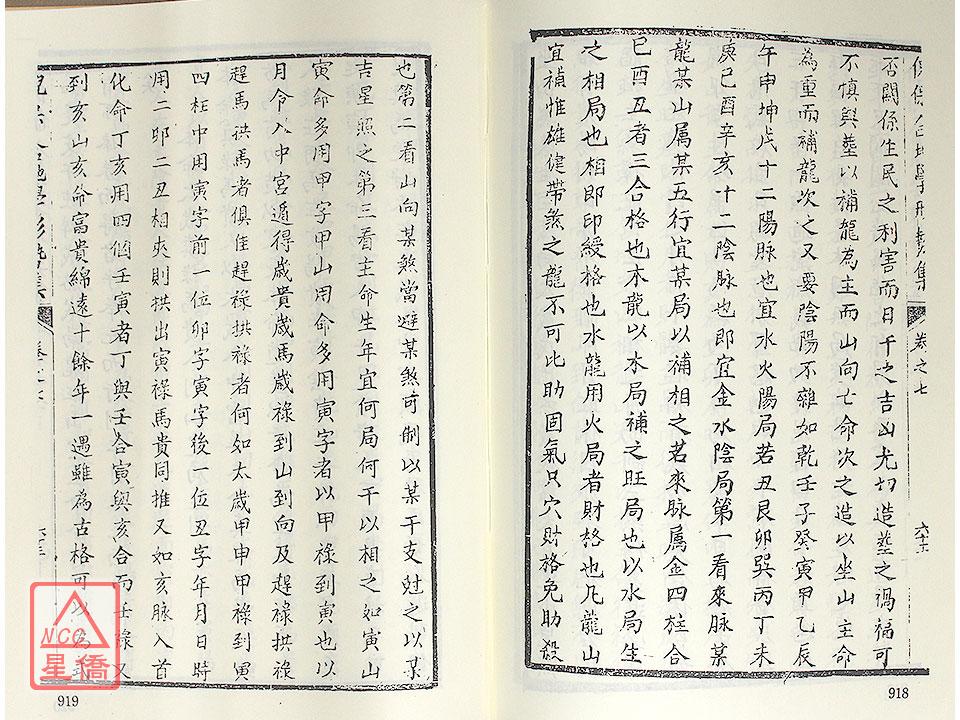 卷之七
六十三
否關係生民之利害而日干之吉凶尤切造塟之禍福可
不慎與塟以補龍為主而山向亡命次之造以坐山主命
為重而補龍次之又要陰陽不雜如乾壬子癸寅甲乙辰
午申坤戌十二陽脉也宜水火陽局若丑艮卯巽丙丁未
庚巳酉辛亥十二陰脉也即宜金水陰局第一看來脉某
龍某山属某五行宜某局以補相之若來脉属金四柱合
巳酉丑者三合格也木龍以木局補之旺局也以水局生
之相局也相即印綬格也水龍用火局者財格也凡龍山
宜補惟雄健帶煞之龍不可比助固氣只穴財格免助殺
918
也第二看山向某煞當避某煞可制以某干支尅之以某
吉星照之第三看主命生年宜何局何干以相之如寅山
寅命多用甲字甲山用命多用寅字者以甲祿到寅也以
月令入中宮遁得歲貴歲馬歲祿到山到向及趕祿拱祿
趕馬拱馬者俱佳趕祿拱祿者何如太歲甲申甲祿到寅
四柱中用寅字前一位卯字寅字後一位丑字年月日時
用二卯二丑相夾則拱出寅祿馬貴同推又如亥脉入首
化命丁亥用四個壬寅者丁與壬合寅與亥合而壬祿又
到亥山亥命富貴綿遠十餘年一遇雖為古格可以為
919
NCC
星僑